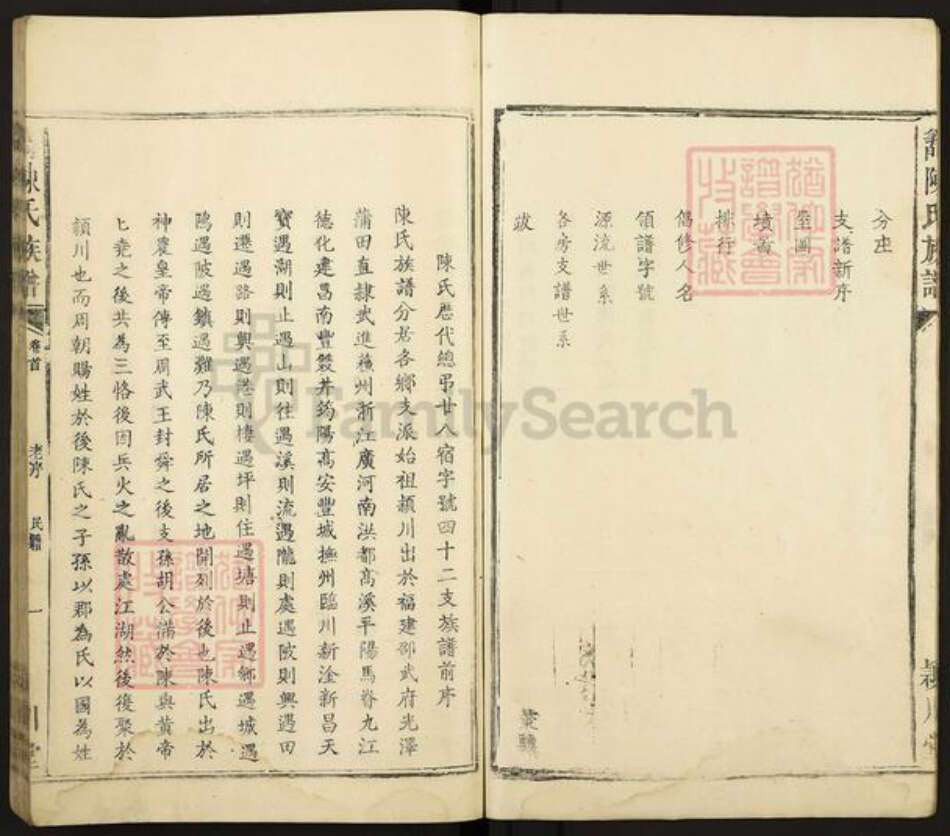 分庄
支譜新序
墳圖
排行
領譜字號
源流世系
各房支譜世系
跋
穎川堂
陳氏歷代總吊廿八宿字號四十二支族譜前序
陳氏族譜分居各鄉支派始祖穎川出於福建邵武府光澤
蒲田直隷武進徐州浙江廣河南洪都高溪平陽馬脊九江
德化建昌南豐雙井筠陽高安豐城撫州臨川新淦新昌天
寶遇湖則止遇山則往遇溪則流遇隴則處遇陂則興遇田
則遷遇路則興遇港則棲遇坪則住遇塘則止遇鄉遇城遇
隝遇陂遇鎮遇灘乃陳氏所居之地開列於後也陳氏出於
神農皇帝傳至周武王封舜之後支孫胡公滿於陳與黃帝
匕堯之後共為三恪後因兵火之亂散處江湖然後復聚於
穎川也而周朝賜姓於後陳氏之子孫以郡為氏以國為姓
陳氏族譜
卷首
老序
民
一
FamilySearch